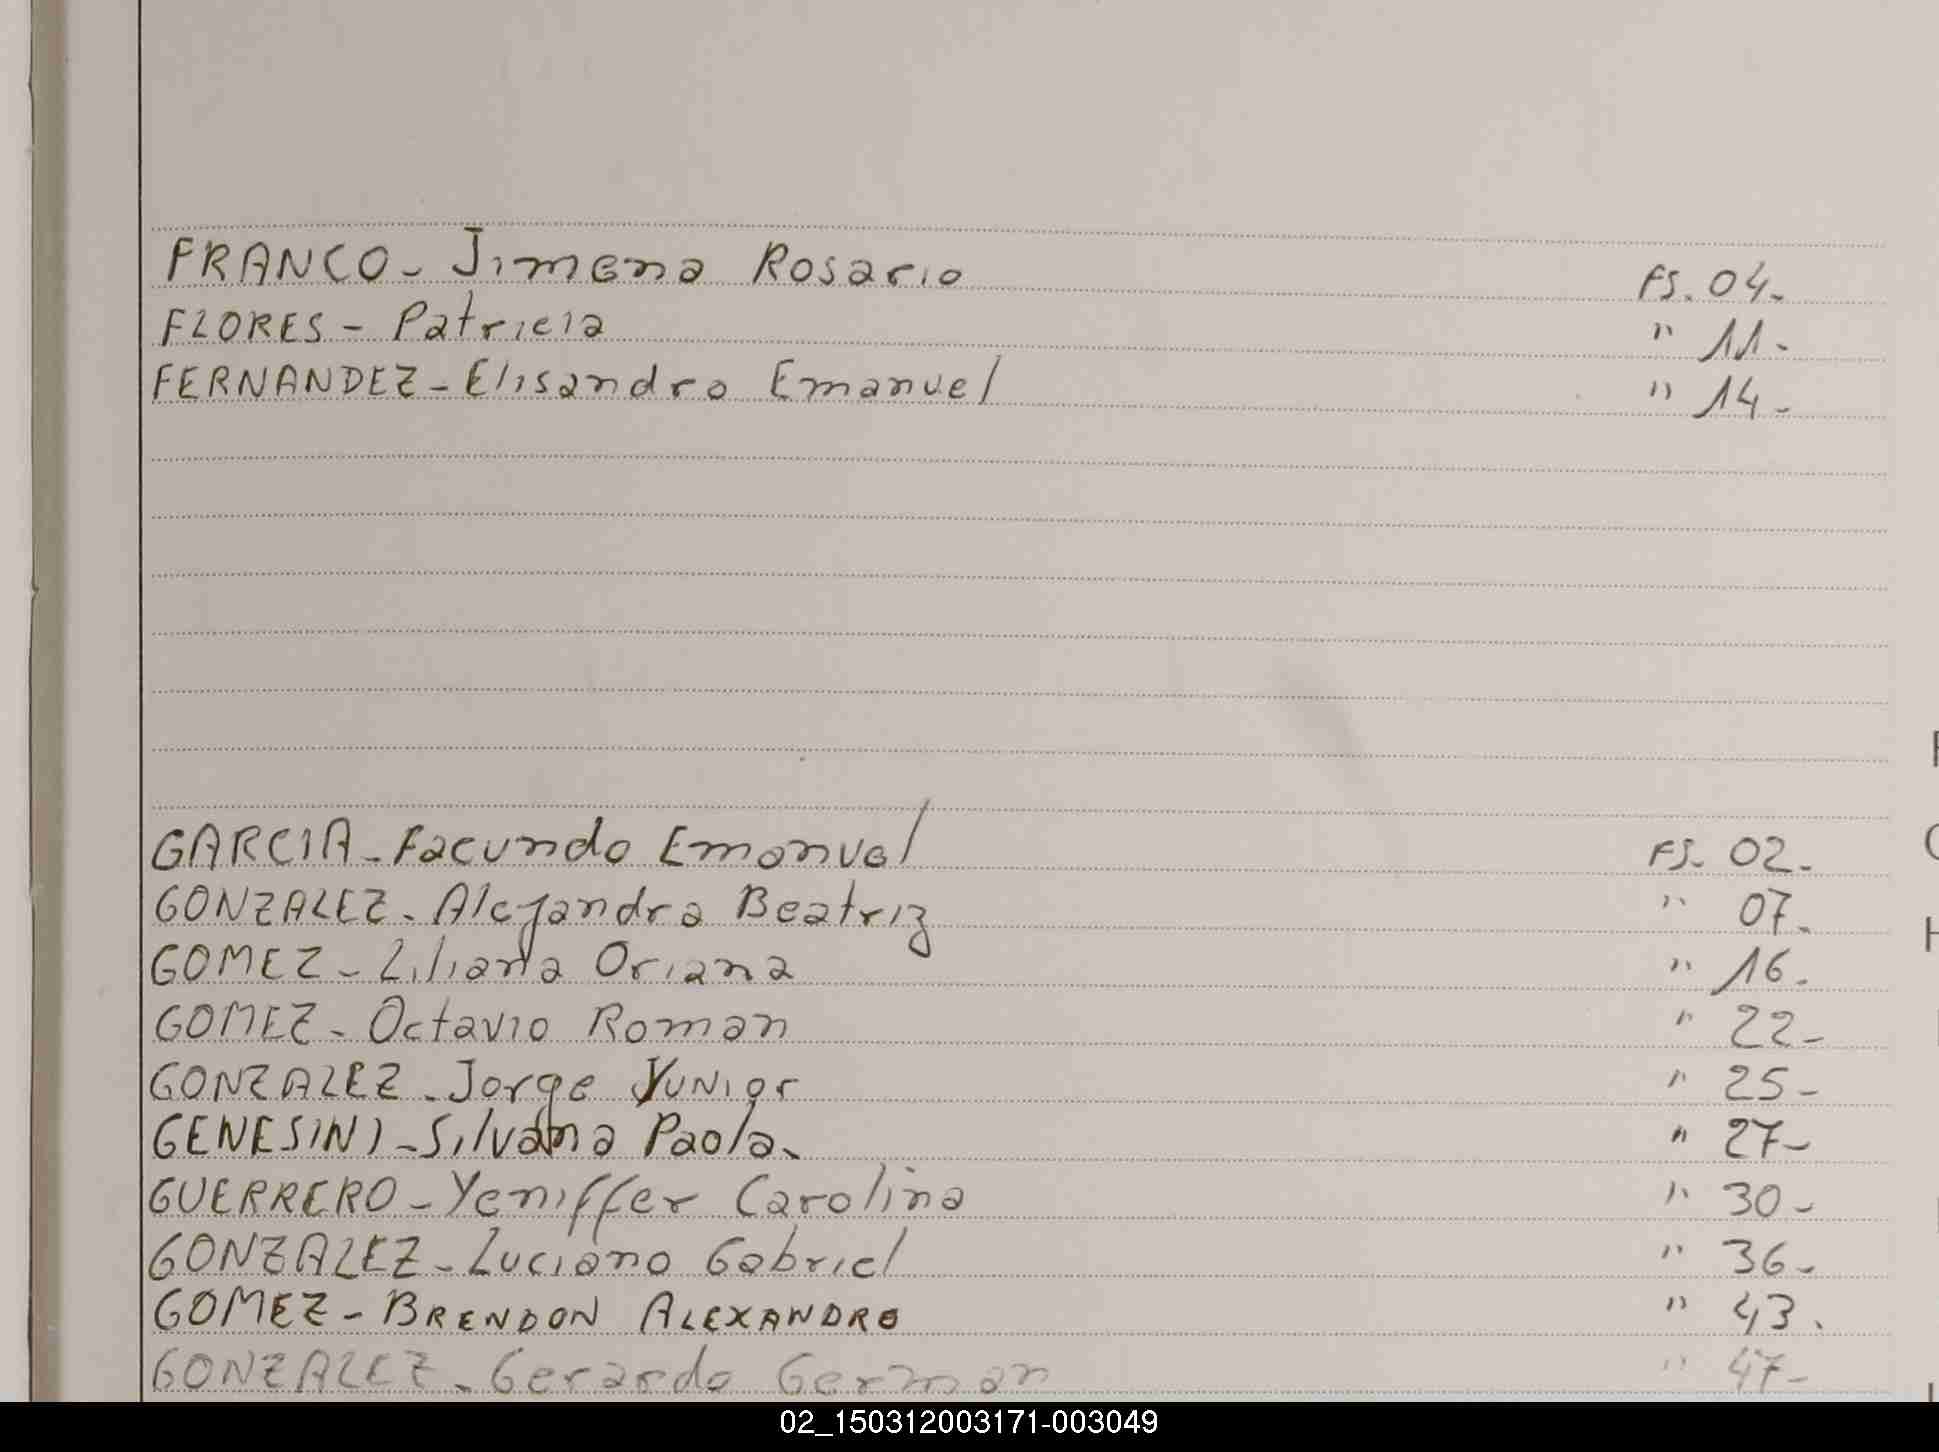 FRANCO - Jimena Rosario FS. 04.-
FLORES - Patricia " 11 -
FERNANDEZ - Elisandro Emanuel " 14 -
GARCIA - Facundo Emanuel FS. 02.-
GONZALEZ - Alejandra Beatriz " 07.
GOMEZ - Liliana Oriana " 16.
GOMEZ - Octavio Roman " 22 -
GONZALEZ - Jorge Yunior " 25 -
GENESINI - Silvana Paola. " 27 -
GUERRERO - Yeniffer Carolina " 30 -
GONZALEZ - Luciano Gabriel " 36 -
GOMEZ - BRENDON ALEXANDRO " 43.
GONZALEZ - Gerardo German " 47 -
02_150312003171-003049